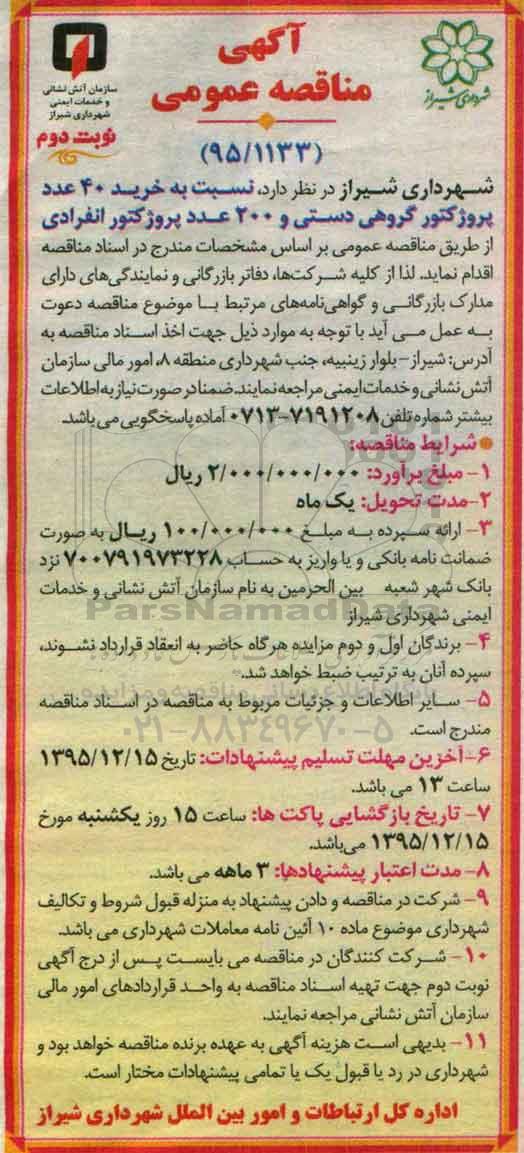 آگهی
مناقصه عمومی
شهرداری شیراز
سازمان آتش نشانی
و خدمات ایمنی
شهرداری شیراز
نوبت دوم
(۹۵/۱۱۳۳)
شهرداری شیراز در نظر دارد، نسبت به خرید ۴۰ عدد
پروژکتور گروهی دستی و ۲۰۰ عدد پروژکتور انفرادی
از طریق مناقصه عمومی بر اساس مشخصات مندرج در اسناد مناقصه
اقدام نماید. لذا از کلیه شرکت‌ها، دفاتر بازرگانی و نمایندگی‌های دارای
مدارک بازرگانی و گواهی‌نامه‌های مرتبط با موضوع مناقصه دعوت
به عمل می آید با توجه به موارد ذیل جهت اخذ اسناد مناقصه به
آدرس: شیراز- بلوار زینبیه، جنب شهرداری منطقه ۸، امور مالی سازمان
آتش نشانی و خدمات ایمنی مراجعه نمایند. ضمنا در صورت نیاز به اطلاعات
بیشتر شماره تلفن ۷۱۹۱۲۰۸-۰۷۱۳ آماده پاسخگویی می باشد.
شرایط مناقصه:
۱- مبلغ برآورد: ۲/۰۰۰/۰۰۰/۰۰۰ ریال
۲-مدت تحویل: یک ماه
۳- ارائه سپرده به مبلغ ۱۰۰/۰۰۰/۰۰۰ ریال به صورت
ضمانت نامه بانکی و یا واریز به حساب ۷۰۰۷۹۱۹۷۳۲۲۸ نزد
بانک شهر شعبه بین الحرمین به نام سازمان آتش نشانی و خدمات
ایمنی شهرداری شیراز
ParsNamadData
۴- برندگان اول و دوم مزایده هرگاه حاضر به انعقاد قرارداد نشوند،
سپرده آنان به ترتیب ضبط خواهد شد.
۵- سایر اطلاعات و جزئیات مربوط به مناقصه در اسناد مناقصه
مندرج است.
۰۲۱-۸۸۳۴۹۶۷۰-۵
۶-آخرین مهلت تسلیم پیشنهادات: تاریخ ۱۳۹۵/۱۲/۱۵
ساعت ۱۳ می باشد.
۷- تاریخ بازگشایی پاکت ها: ساعت ۱۵ روز یکشنبه مورخ
۱۳۹۵/۱۲/۱۵ می‌باشد.
۸- مدت اعتبار پیشنهادها: ۳ ماهه می باشد.
۹- شرکت در مناقصه و دادن پیشنهاد به منزله قبول شروط و تکالیف
شهرداری موضوع ماده ۱۰ آئین نامه معاملات شهرداری می باشد.
۱۰- شرکت کنندگان در مناقصه می بایست پس از درج آگهی
نوبت دوم جهت تهیه اسناد مناقصه به واحد قراردادهای امور مالی
سازمان آتش نشانی مراجعه نمایند.
۱۱- بدیهی است هزینه آگهی به عهده برنده مناقصه خواهد بود و
شهرداری در رد یا قبول یک یا تمامی پیشنهادات مختار است.
اداره کل ارتباطات و امور بین الملل شهرداری شیراز